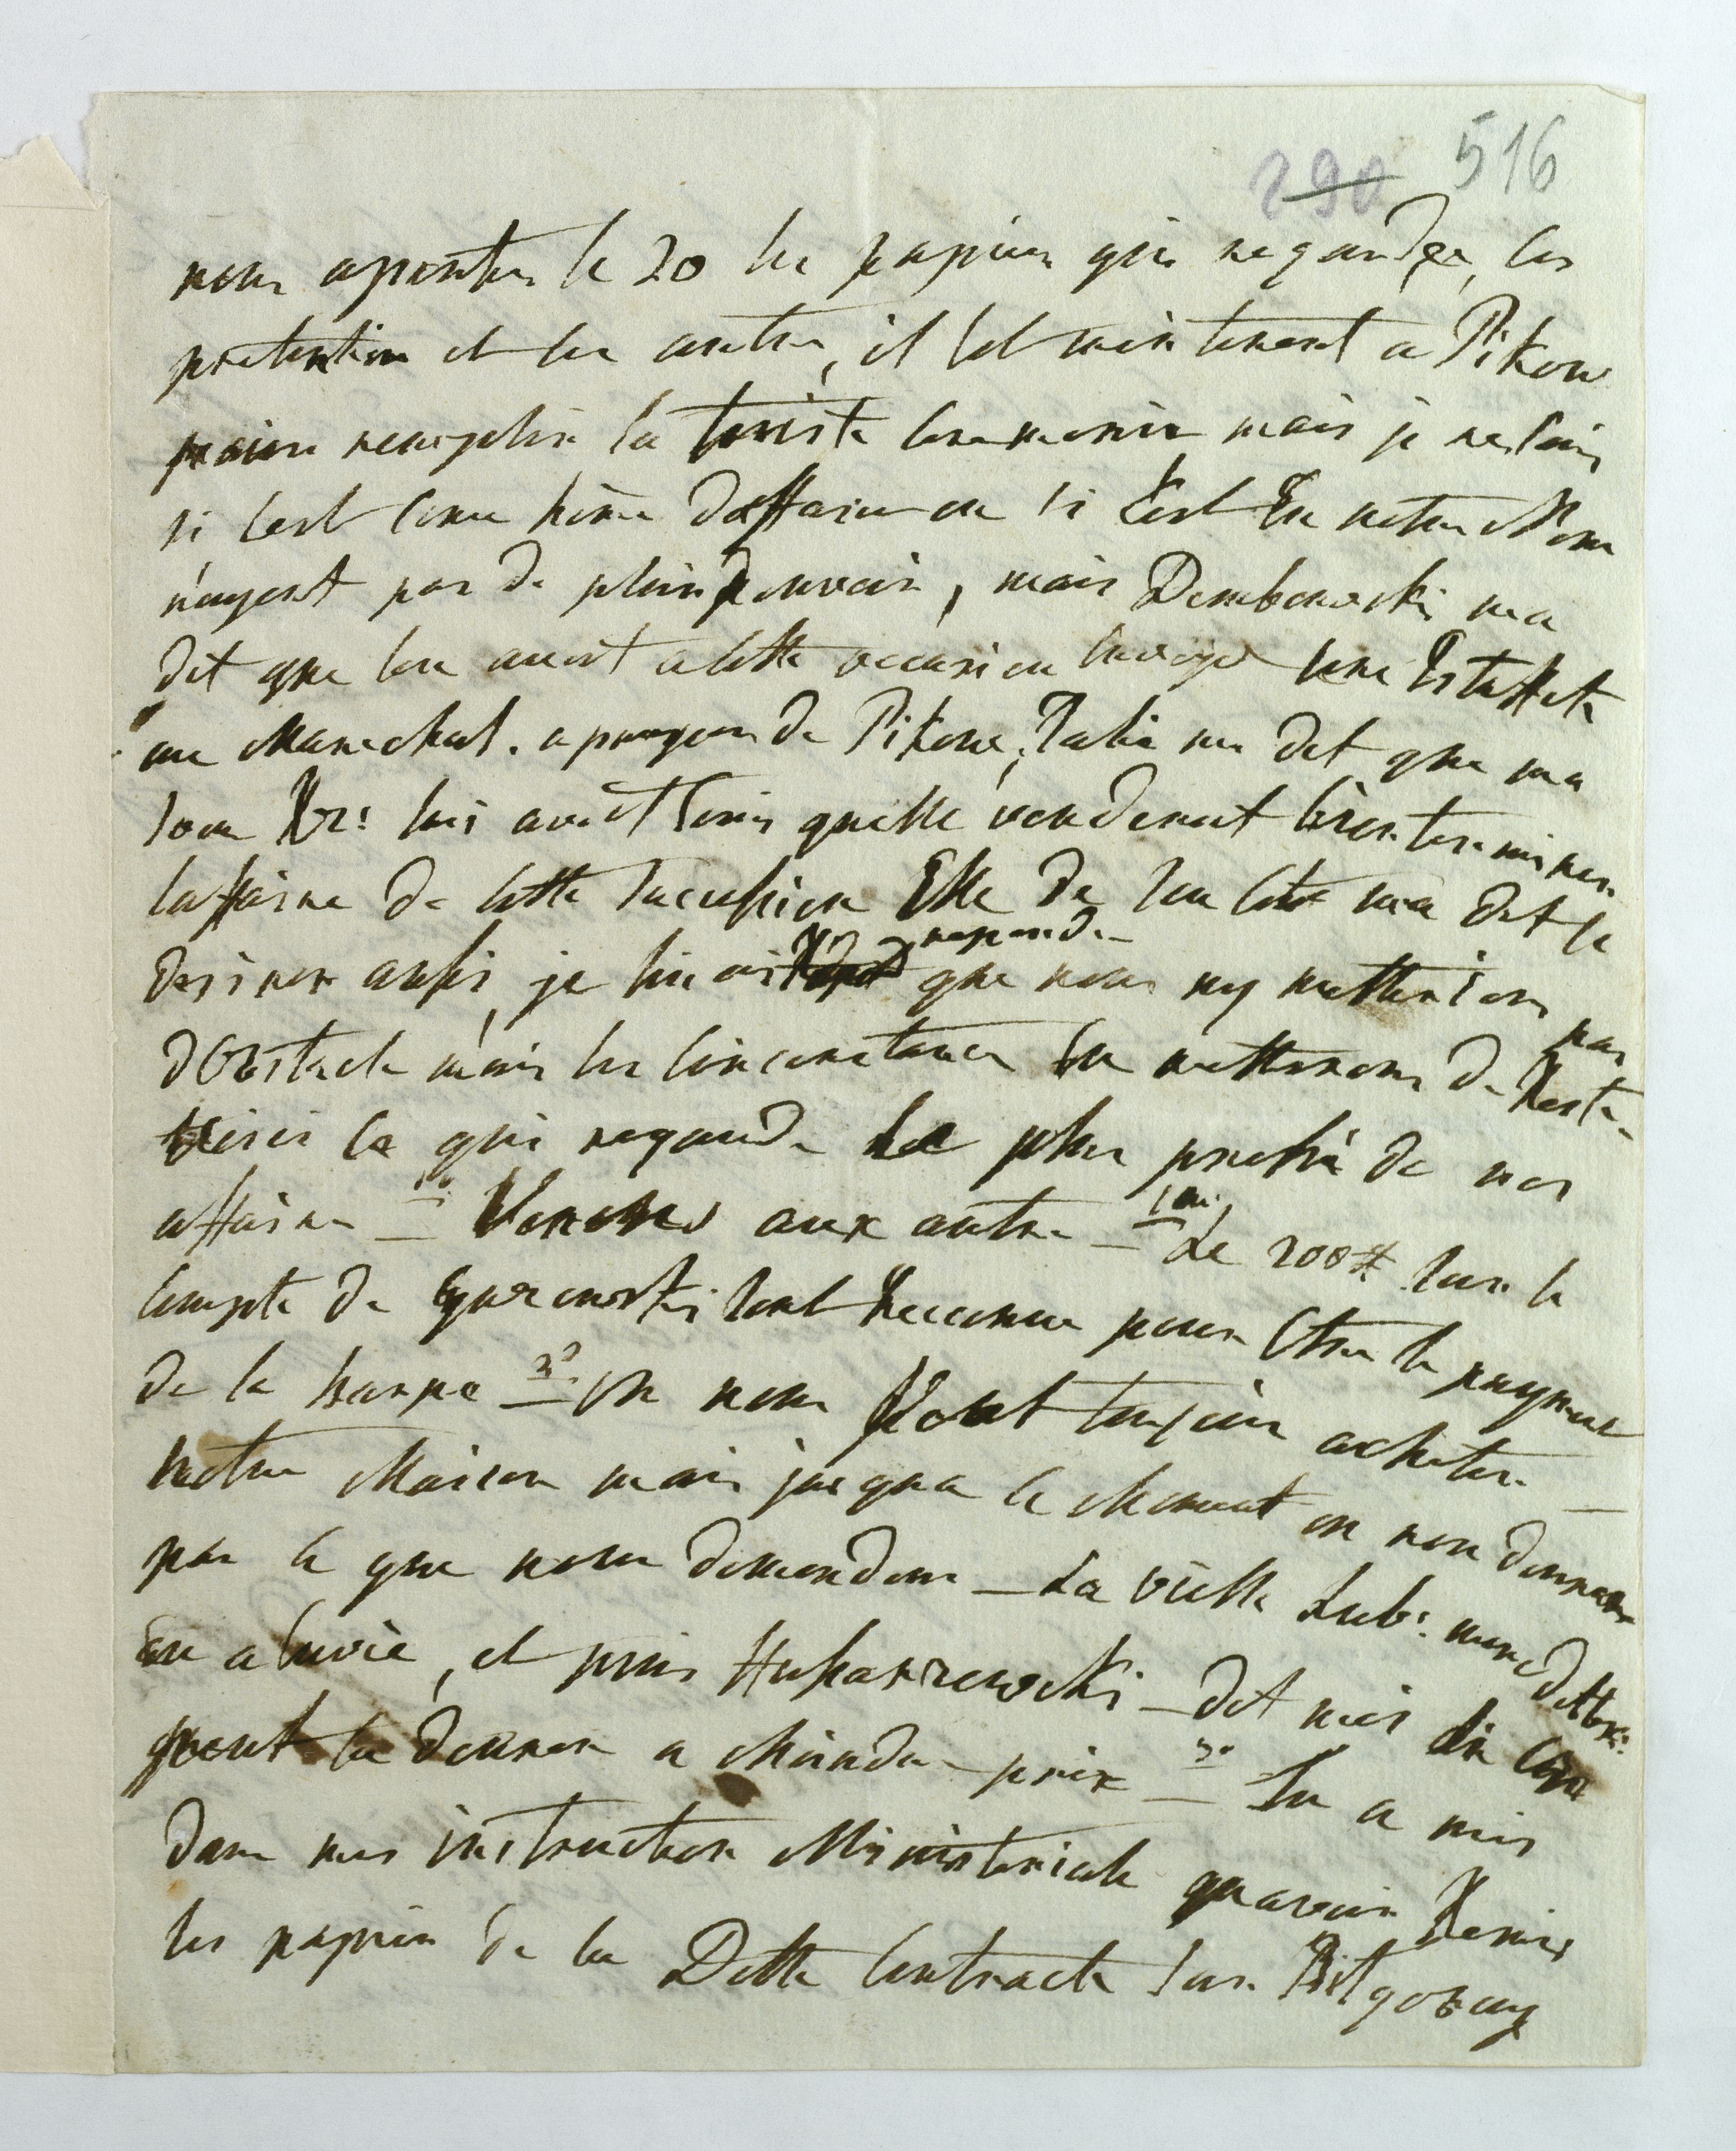 290 516
nous aporter le 20 les papiers qui regarde les
pretention et les autre, il est maintenent a Pikow
pour remplir la triste ceremonie mais je ne sais
si cest come home daffaire ou si cest En notre Nom
n'ayent pas de plein pouvoir, mais Dembowski ma
dit que lon avoit a cette occasion envoyé une Estaffete
au Marechal. a propos de Pikow, Julie me dit que ma
soeur Kr: lui avoit ecris quelle vouderoit bien terminer
laffaire de cette succession Elle de son coté ma dit le
desirer aussi, je lui ai repondu que nous ny metterions pas
dObstacle mais les circonstances En metterons de Reste
voici ce qui regarde le plus pressé de nos
affaires = Venons aux autre = 1mo Le 200# sur le
compte de sont Reconnu pour Etre le payment
de la harpe 2o On nous Veut toujour acheter
notre Maison mais jusqua ce Moment on non donne
pas ce que nous demendons – La vielle Lub:
En a Envie, et puis – dit moi si lon
peut la donner a Moindre prix = 3o Tu a mis
dans mes instruction Ministeriale quavoir Remis
les papier de la Dette Contracte sur Bilgoray